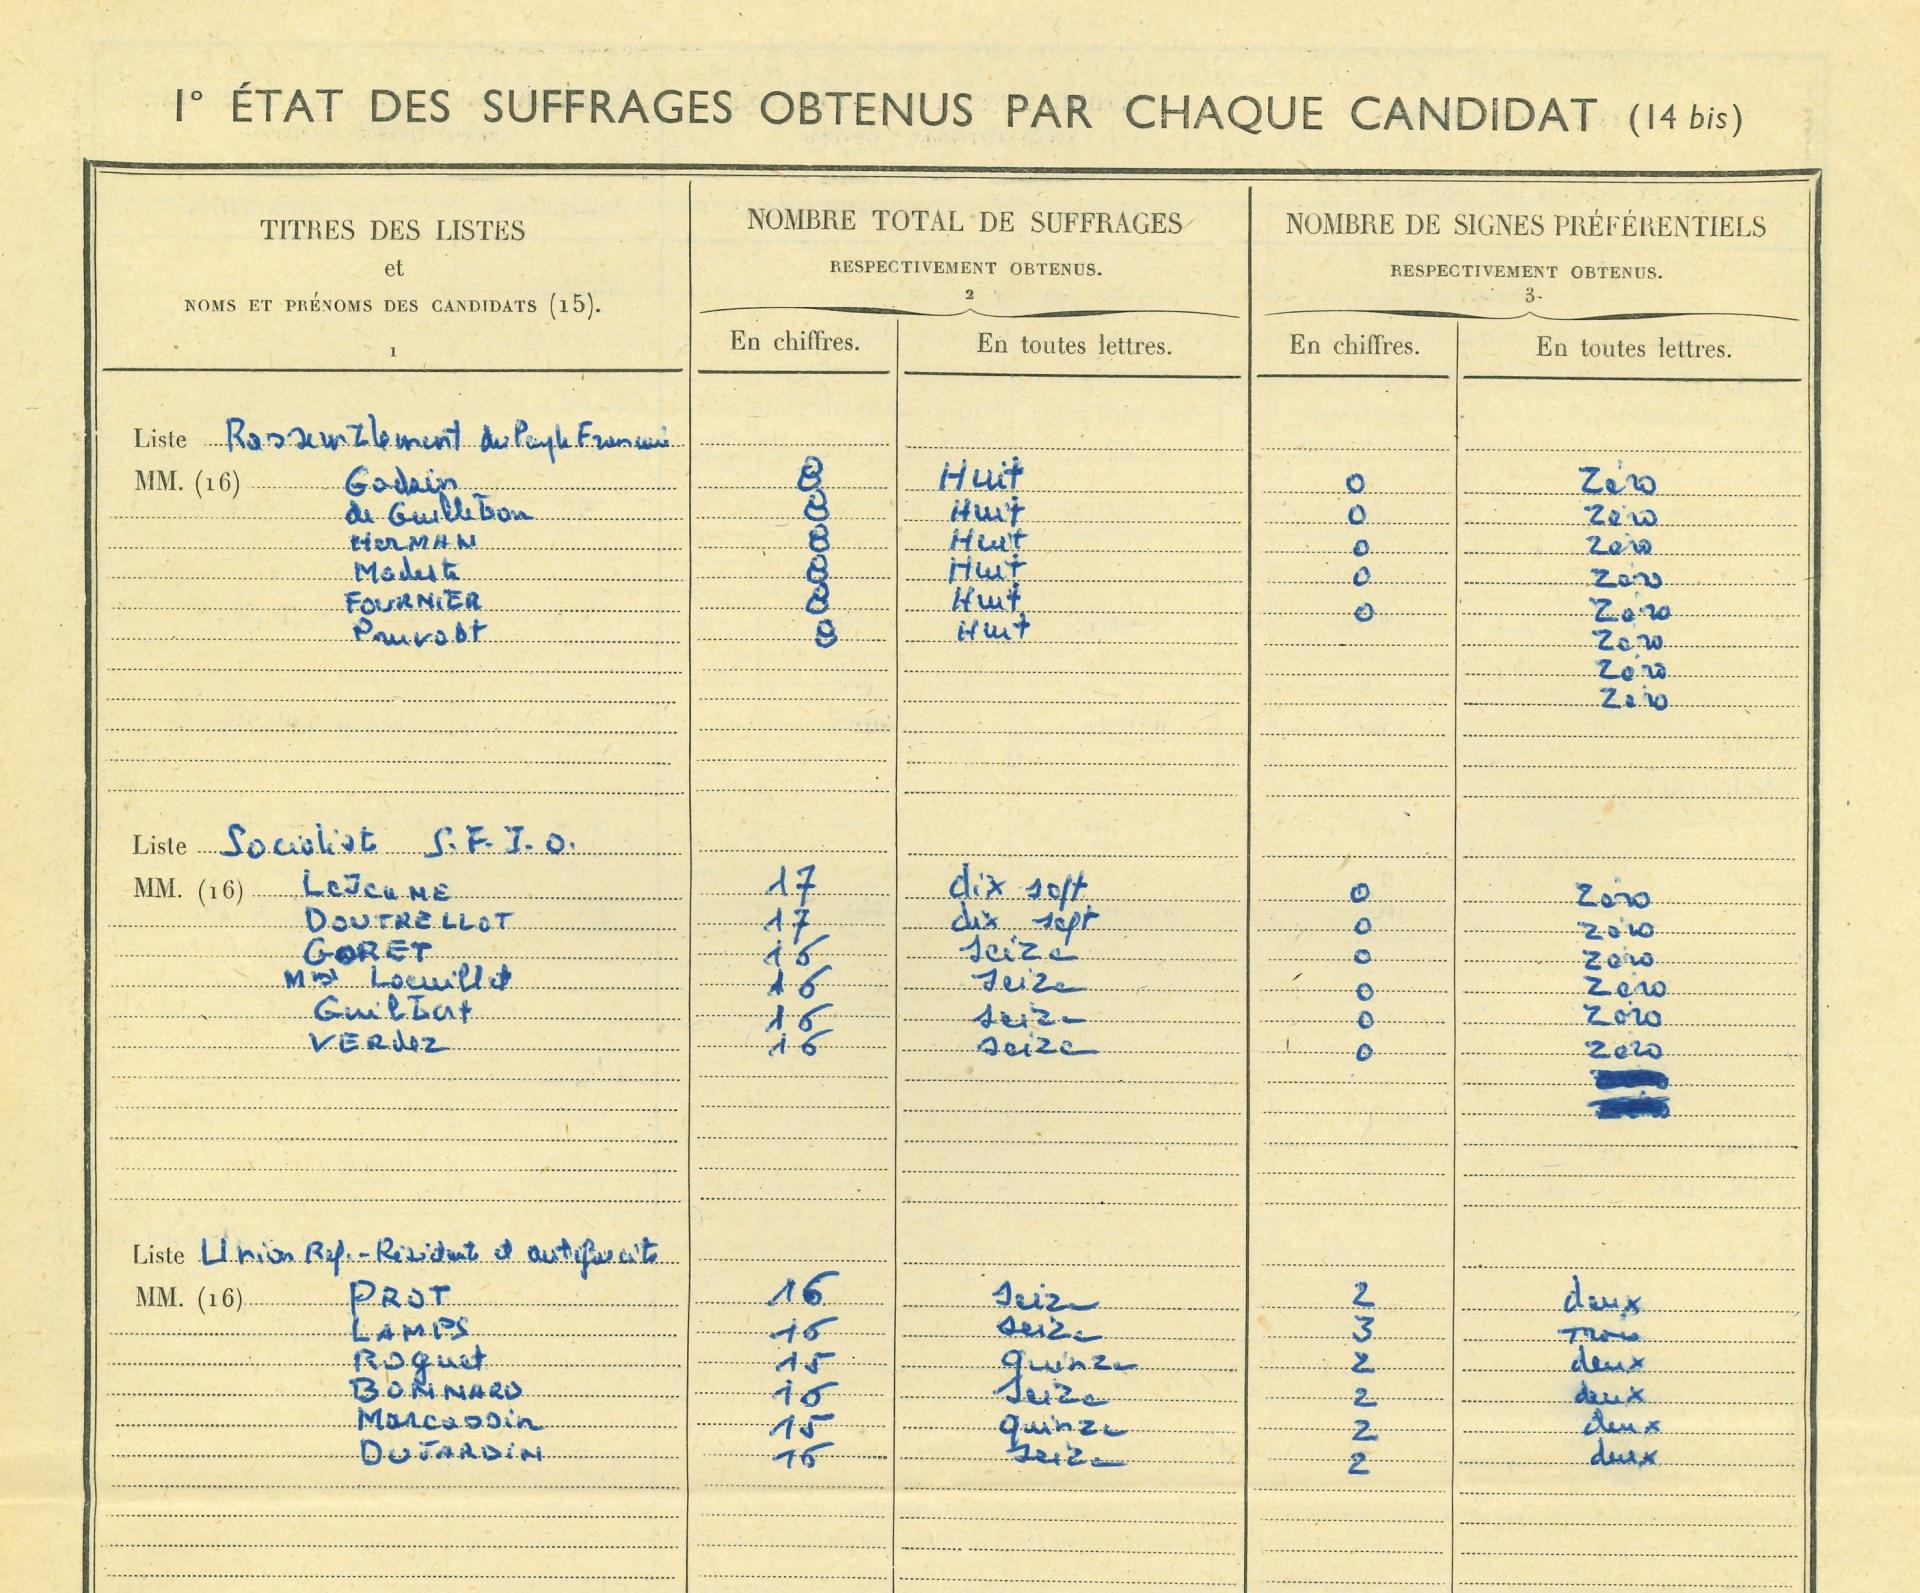 1° ÉTAT DES SUFFRAGES OBTENUS PAR CHAQUE CANDIDAT (14 bis)
TITRES DES LISTES
et
NOMS ET PRÉNOMS DES CANDIDATS (15).
1
NOMBRE TOTAL DE SUFFRAGES
RESPECTIVEMENT OBTENUS.
2
En chiffres. En toutes lettres.
NOMBRE DE SIGNES PRÉFÉRENTIELS
RESPECTIVEMENT OBTENUS.
3
En chiffres. En toutes lettres.
Liste Rassemblement du Peuple Français
MM. (16) Godain 8 Huit 0 Zéro
de Guillebon 8 Huit 0 Zéro
HerMAN 8 Huit 0 Zéro
Modeste 8 Huit 0 Zéro
FOURNIER 8 Huit 0 Zéro
Pruvost 8 Huit Zéro
Zéro
Zéro
Liste Socialiste S.F.I.O.
MM. (16) LeJeuNE 17 dix sept 0 Zéro
DOUTRELLOT 17 dix sept 0 Zéro
GORET 16 seize 0 Zéro
Loeuillet 16 seize 0 Zéro
Guilbert 16 seize 0 Zéro
VERdez 16 seize 0 Zéro
Liste Union Rép.-Résistante et antifasciste
MM. (16) PROT 16 seize 2 deux
LAMPS 16 seize 3 Trois
Roguet 15 quinze 2 deux
BONNARD 16 seize 2 deux
Marcassin 15 quinze 2 deux
DUJARDIN 16 seize 2 deux